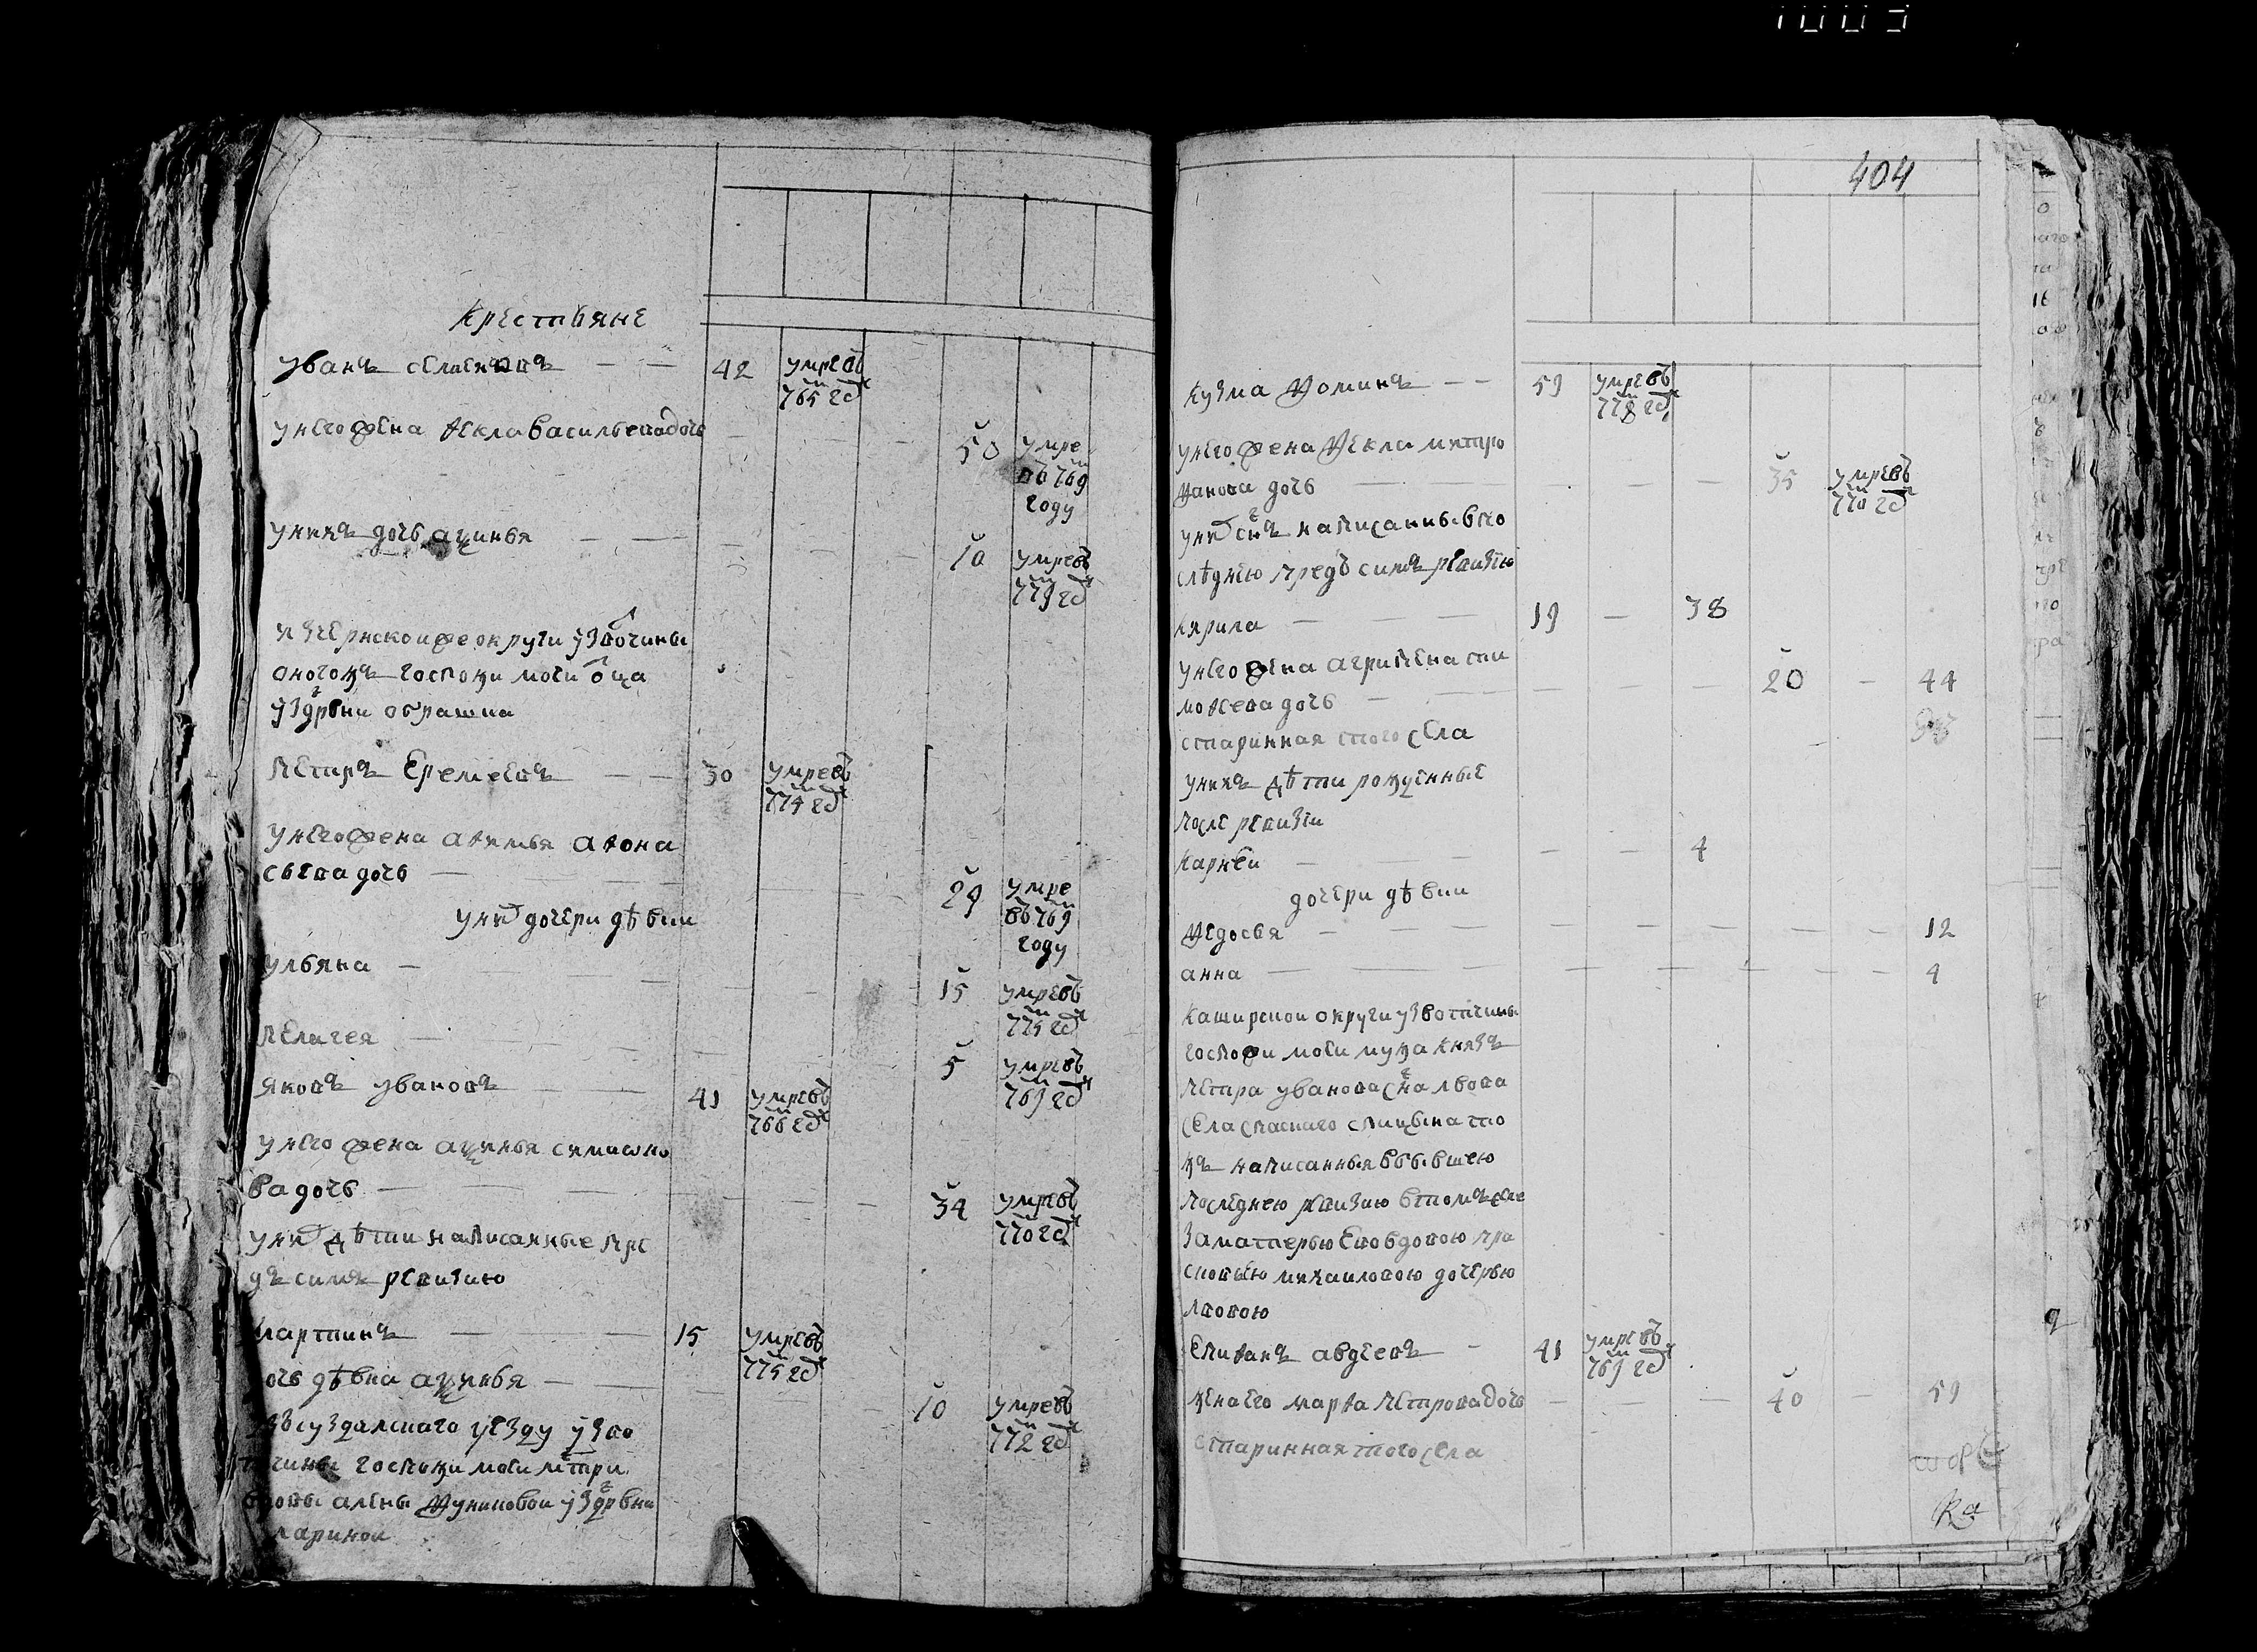 крестьяне
уванъ селиеновъ — — 42 умре въ 765 гд
унегожена ѳекла васильева дочь 50 умре въ 769 году
унихъ дочь аѯинья — — 10 умре въ 779 гд
оногожъ госпожи моеи оца
уз дрвни обрашиха
петръ еремеевъ — — 30 умре въ 774 гд
унегожена аѳимья аѳона
сьева дочь — 29 умре въ 769 году
уних дочери дѣвки
ульяна — 15 умре въ 775 гд
пелагея — 5 умре въ 769 гд
яковъ увановъ 41 умре въ 766 гд
унего жена аѯинья симионо
ва дочь — 34 умре въ 770 гд
уних дѣти написанные пре
дъ симъ ревизию
мартинъ — 15 умре въ 775 гд
очь дѣвка аѯинья — 10 умре въ 772 гд
суздалскаго уезду узво
чины госпожи моеи мтри
вдовы алены уз дрвни
ларинои
404
кузма ѳоминъ — — 59 умре въ 778 гд
унего жена ѳекла митро
ѳанова дочь 35 умре въ 770 гд
уних снъ написанные впо
слѣднею предъ симъ ревизию
кирила — 19 — 38
унего жена агрипена ти
моѳеева дочь — 20 — 44
старинная того села
унихъ дѣти рожденные
после ревизии
карнеи — 4
дочери дѣвки
ѳедосья — 12
анна — 4
каширскои округи узвотчины
госпожи моеи мужа князъ
петра уванова сна лвова
села спаскаго спицына то
жъ написанныя вбывшею
последнею ревизию втомъ селе
заматерью ево вдовою пра
сковьею михаиловою дочерью
лвовою
епиѳанъ авдеевъ — 41 умре въ 769 гд
жена его марѳа петрова дочь — 40 — 59
старинная того села